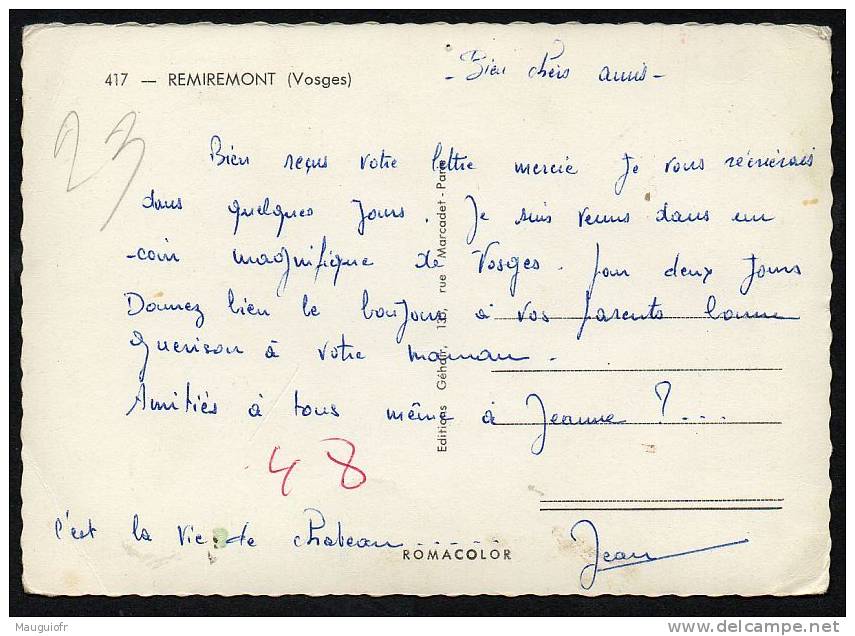 417 — REMIREMONT (Vosges)
- Bien chers amis -
23
Bien reçus votre lettre mercie Je vous réécrirais
dans quelques jours. Je suis venus dans un
coin magnifique de Vosges. pour deux Jours
Donnez bien le bonjour à vos parents bonne
guerison à votre maman.
Amitiés à tous même à Jeanne ?...
48
c'est la vie de chateau......
Jean
ROMACOLOR
Editions Géhair, 130, rue Marcadet - Paris
Mauguiofr
delcampe.net